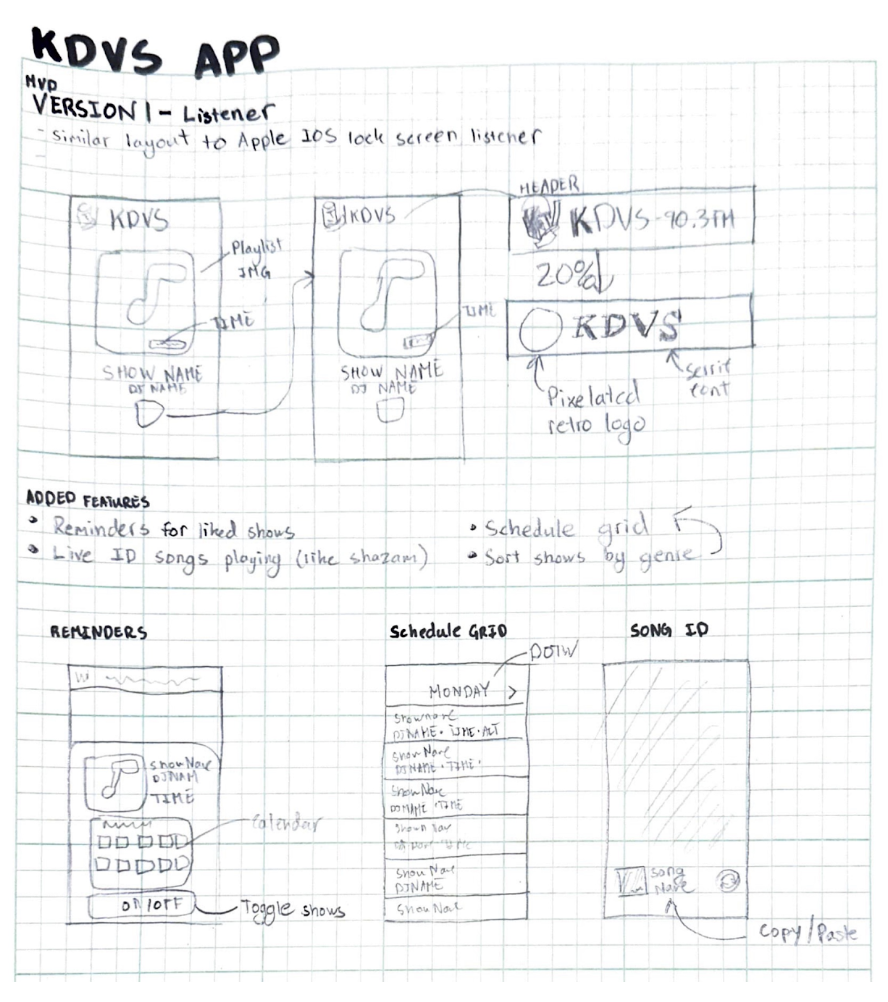 KDVS APP
MVP
VERSION 1 - Listener
- similar layout to Apple IOS lock screen listener
KDVS
Playlist
IMG
TIME
SHOW NAME
DJ NAME
KDVS
TIME
SHOW NAME
DJ NAME
HEADER
KDVS-90.3FM
20%
KDVS
Pixelated
retro logo
serif
font
ADDED FEATURES
• Reminders for liked shows
• Live ID songs playing (like shazam)
• Schedule grid
• Sort shows by genre
REMINDERS
Show Name
DJ NAM
TIME
Calendar
ON/OFF
Toggle shows
Schedule GRID
DOTW
MONDAY >
Show name
DJ NAME • TIME • ALT
Show Name
DJ NAME • TIME •
Show Name
DJ NAME • TIME
Show Name
DJ NAME
Show Name
SONG ID
Song
Name
Copy/Paste